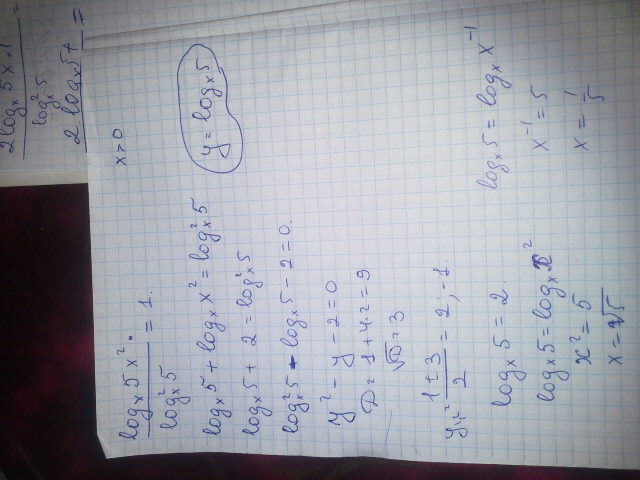 2log_x 5x·1 =
log²_x 5
2·log_x 5 + =
x>0
log_x 5x² · / log²_x 5 = 1.
log_x 5 + log_x x² = log²_x 5
y = log_x 5
log_x 5 + 2 = log²_x 5
log²_x 5 - log_x 5 - 2 = 0.
y² - y - 2 = 0
D = 1 + 4·2 = 9
√D = 3
y₁,₂ = (1±3)/2 = 2; -1.
log_x 5 = 2.
log_x 5 = log_x x²
x² = 5
x = √5
log_x 5 = log_x x⁻¹
x⁻¹ = 5
x = 1/5